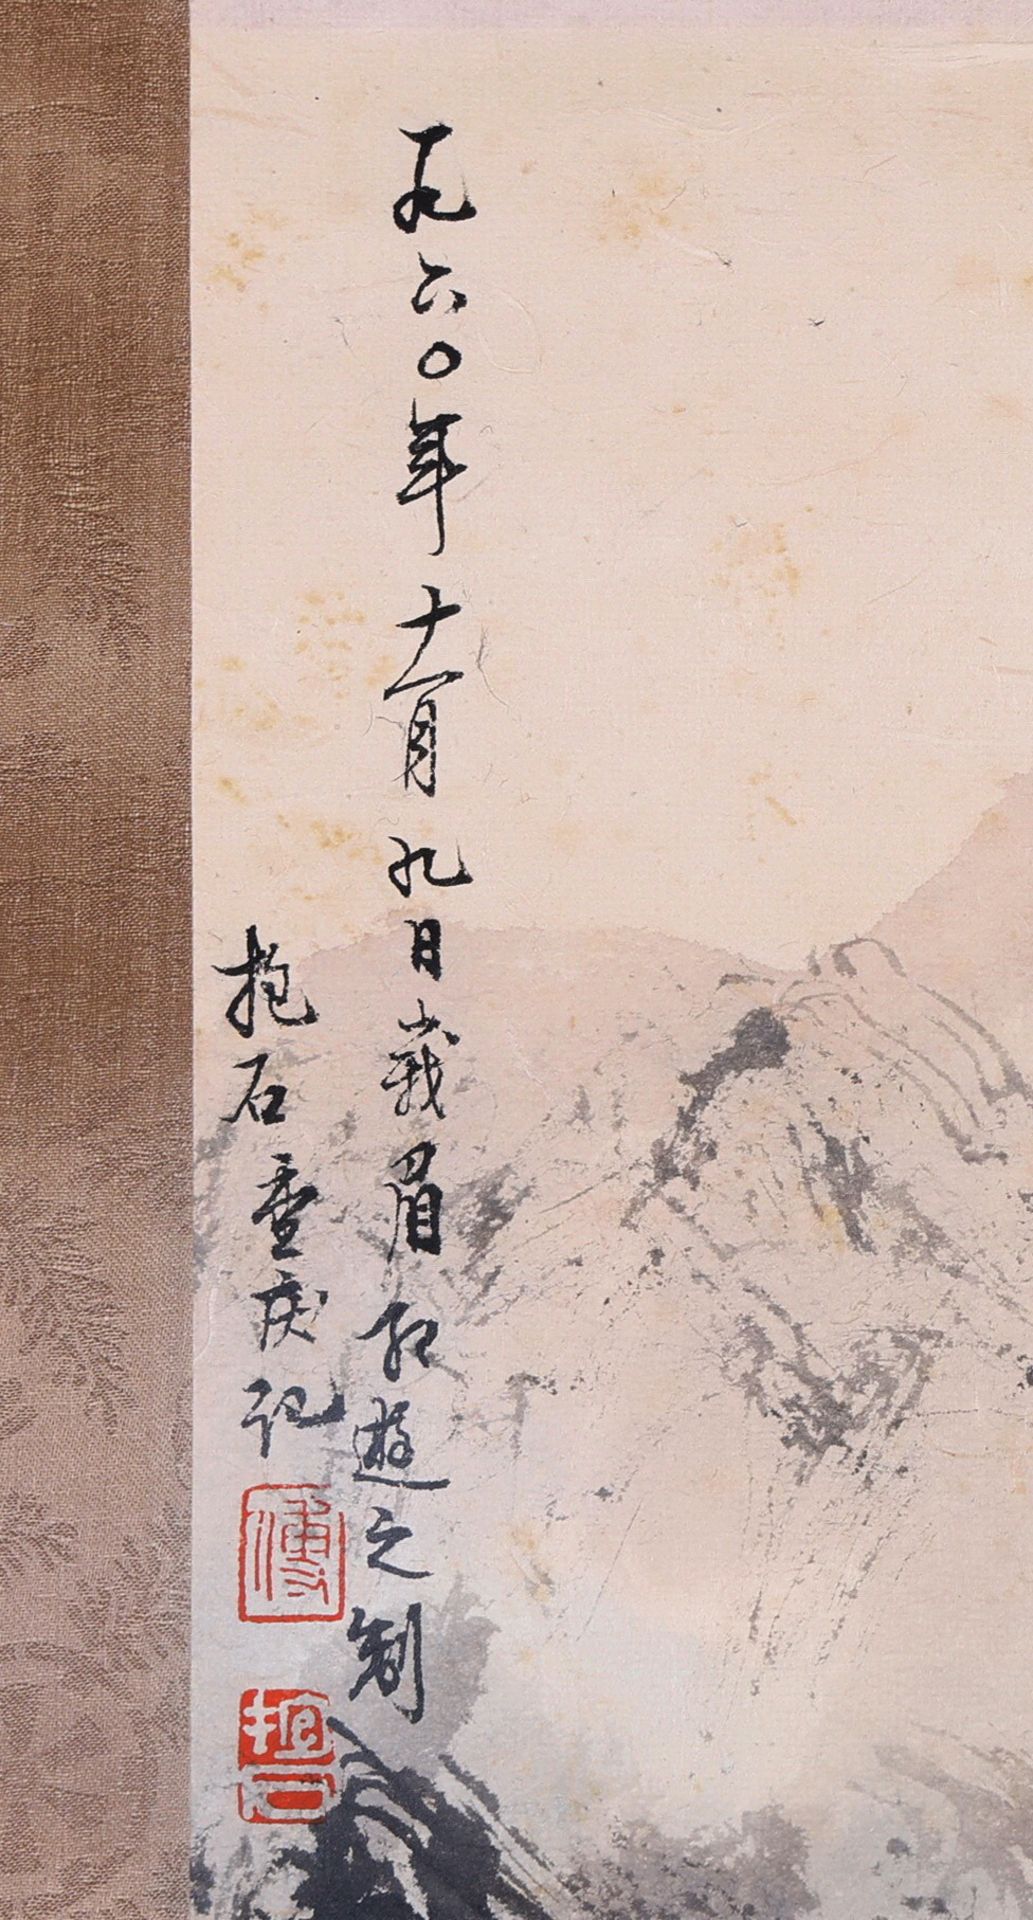 一九六〇年十一月九日峩眉初遊之制
抱石重庆记
傅
抱石